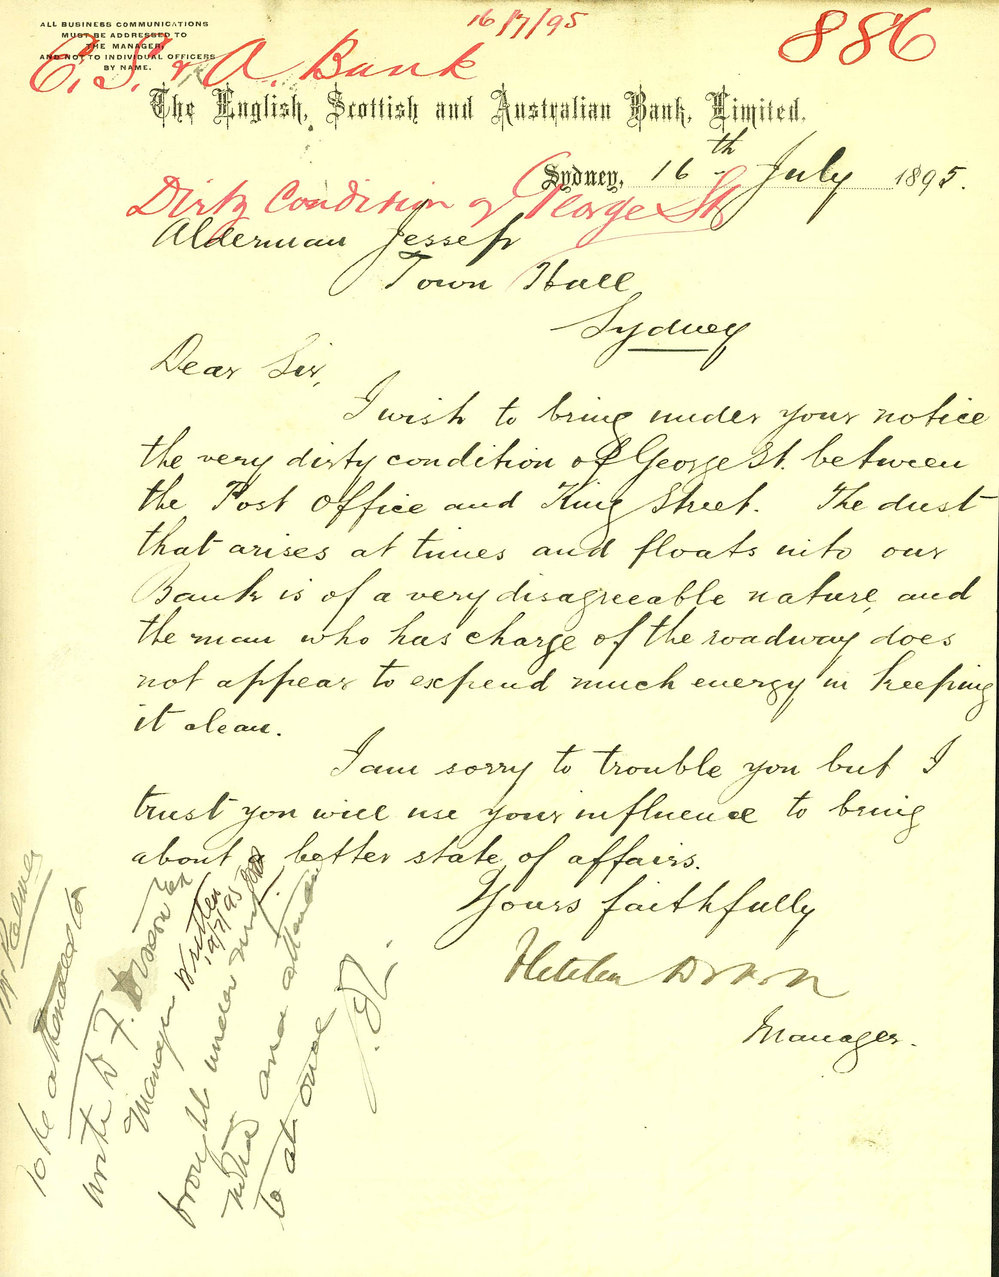 ALL BUSINESS COMMUNICATIONS
MUST BE ADDRESSED TO
THE MANAGER,
AND NOT TO INDIVIDUAL OFFICERS
BY NAME.
16/7/95
886
E. S. & A. Bank
The English, Scottish and Australian Bank, Limited.
Sydney, 16th July 1895.
Dirty Condition of George St
Alderman Jessep
Town Hall
Sydney
Dear Sir,
I wish to bring under your notice
the very dirty condition of George St. between
the Post Office and King Street. The dust
that arises at times and floats into our
Bank is of a very disagreeable nature, and
the man who has charge of the roadway does
not appear to expend much energy in keeping
it clean.
I am sorry to trouble you but I
trust you will use your influence to bring
about a better state of affairs.
Yours faithfully
Dixon
Manager.
To be attended to
write D F.
Manager
Written
19/7/95
brought under my
notice and attended
to at once